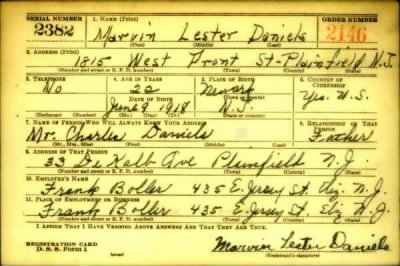 SERIAL NUMBER 1. NAME (Print) ORDER NUMBER
2382 Marvin Lester Daniels 2146
(First) (Middle) (Last)
2. ADDRESS (Print)
1815 West Front St-Plainfield N.J.
(Number and street or R. F. D. number) (Town) (County) (State)
3. TELEPHONE 4. AGE IN YEARS 5. PLACE OF BIRTH 6. COUNTRY OF CITIZENSHIP
No 22 Newark Yes. U.S.
DATE OF BIRTH
June 9 1918 N.J.
7. NAME OF PERSON WHO WILL ALWAYS KNOW YOUR ADDRESS 8. RELATIONSHIP OF THAT PERSON
Mr. Charles Daniels Father
(Mr., Mrs., Miss) (First) (Middle) (Last)
9. ADDRESS OF THAT PERSON
33 De Kalb Ave Plainfield N.J.
(Number and street or R. F. D. number) (Town) (County) (State)
10. EMPLOYER'S NAME
Frank Boller 435 E. Jersey St. Eliz N.J.
11. PLACE OF EMPLOYMENT OR BUSINESS
Frank Boller 435 E. Jersey St. Eliz N.J.
(Number and street or R. F. D. number) (Town) (County) (State)
I AFFIRM THAT I HAVE VERIFIED ABOVE ANSWERS AND THAT THEY ARE TRUE.
REGISTRATION CARD
D. S. S. Form 1 (over) Marvin Lester Daniels
(Registrant's signature)